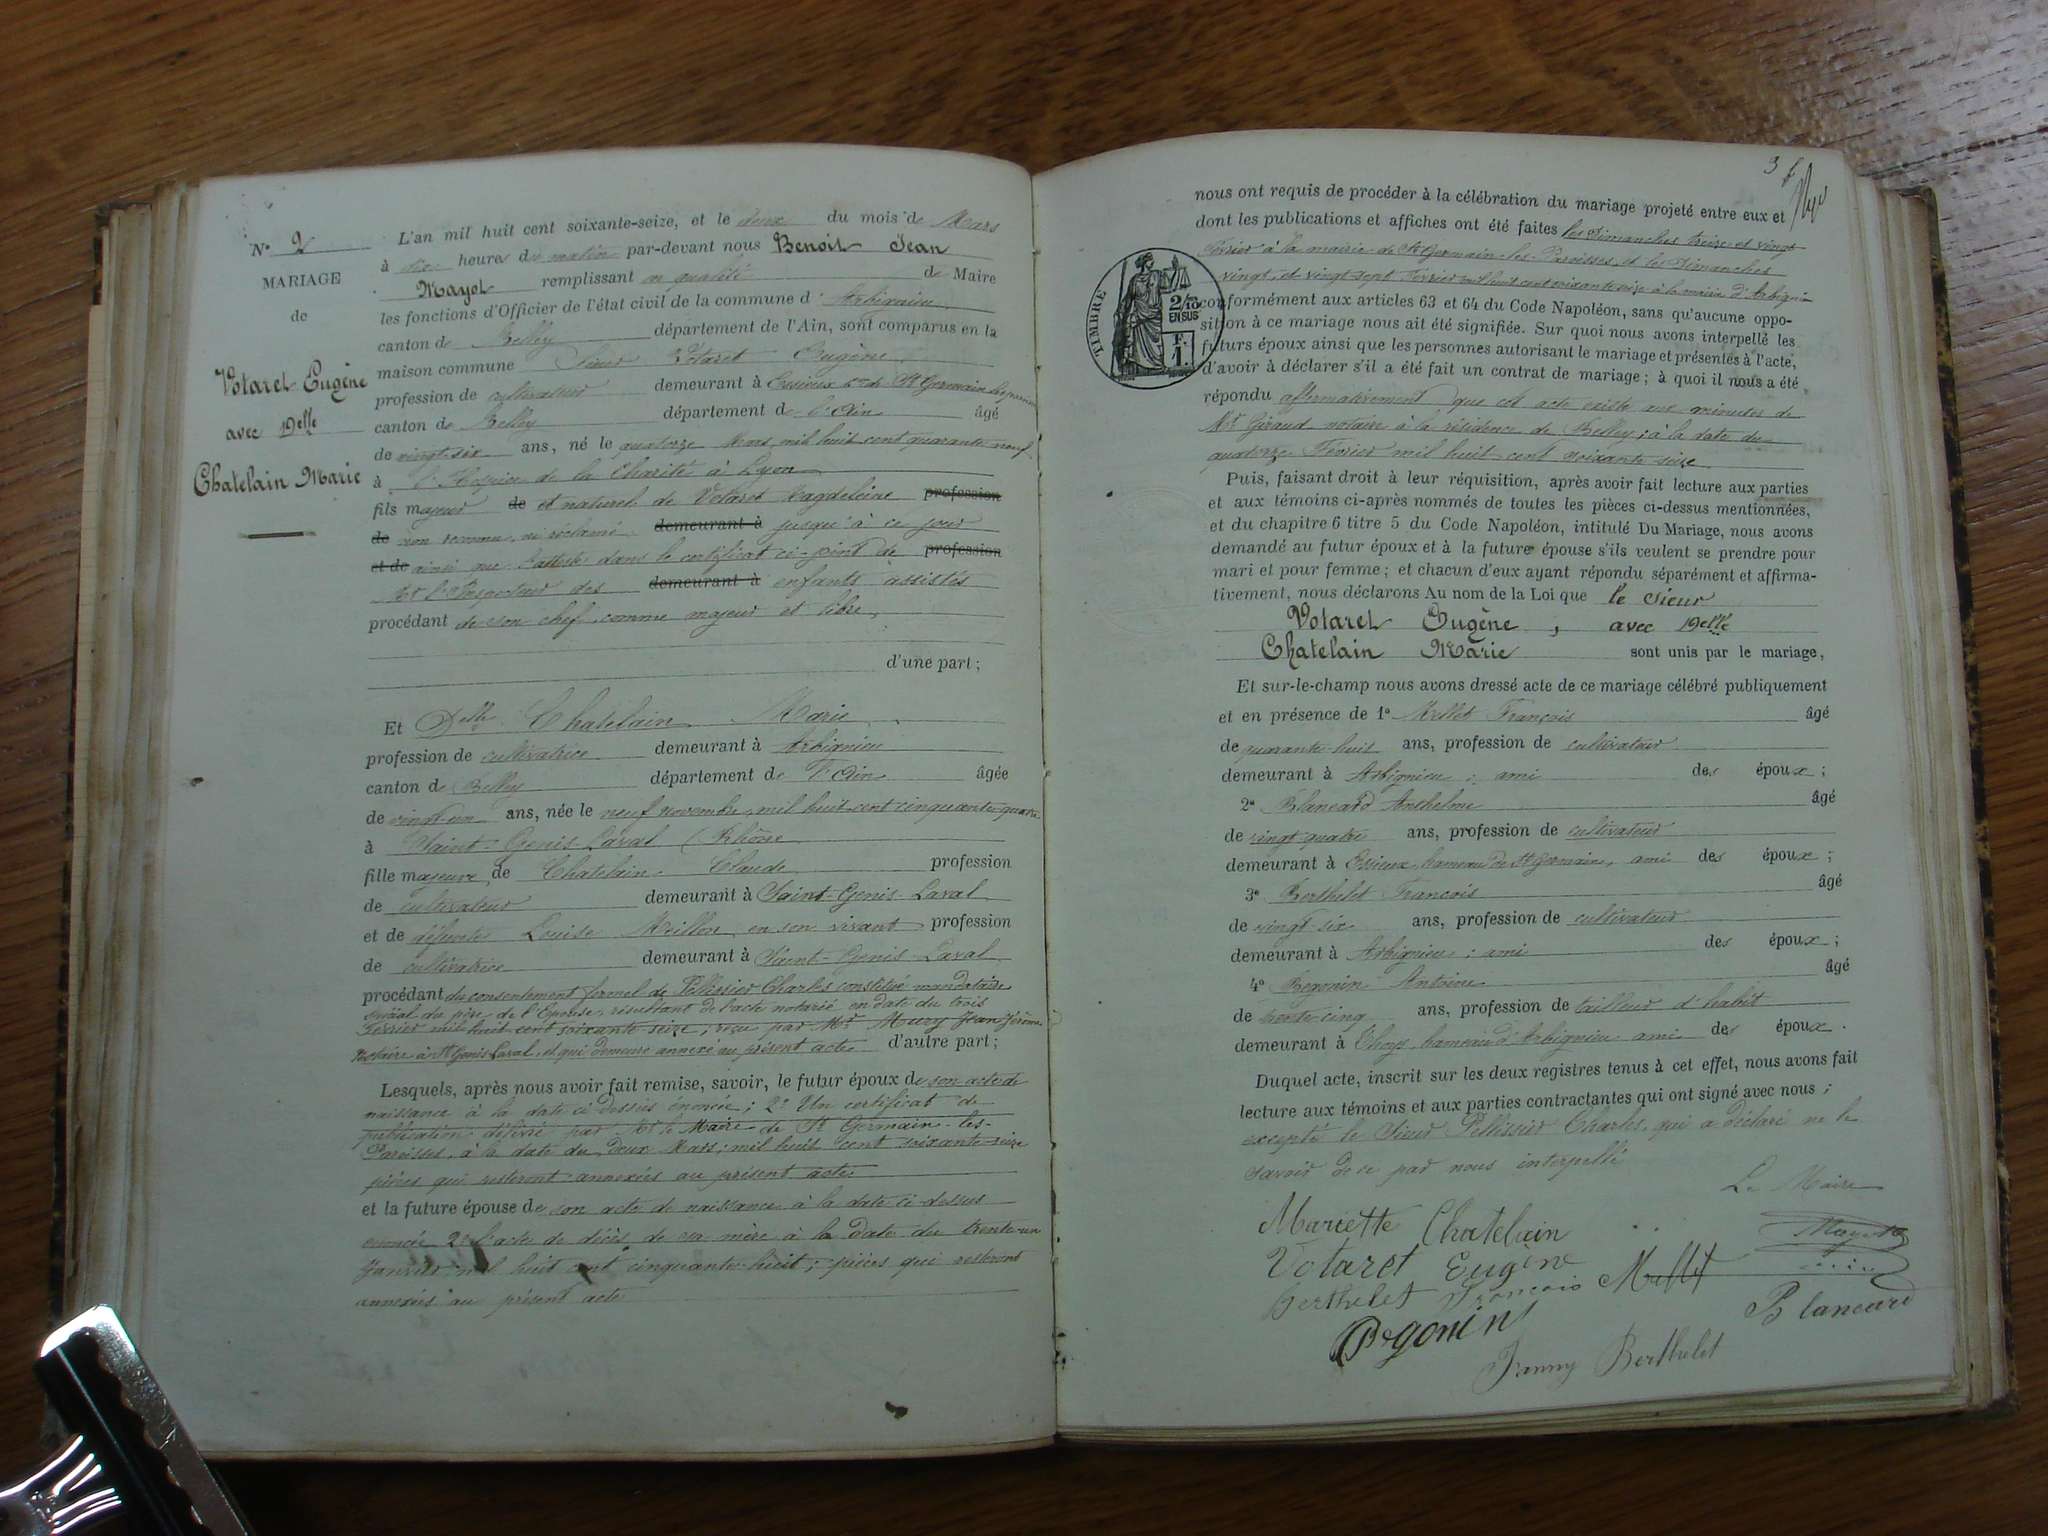 N° 2
MARIAGE
de
Votaret Eugène
avec Delle
Chatelain Marie
L'an mil huit cent soixante-seize, et le deux du mois de Mars
à dix heures du matin par-devant nous Benoit Jean
Mayot remplissant en qualité de Maire
les fonctions d'Officier de l'état civil de la commune d'Arbignieu
canton de Belley département de l'Ain, sont comparus en la
maison commune Sieur Votaret Eugène
profession de cultivateur demeurant à St Germain
canton de Belley département de l'Ain âgé
de vingt-six ans, né le quatorze Mars mil huit cent quarante neuf
à l'Hospice de la Charité à Lyon
fils majeur de et naturel de Votaret Magdeleine profession
de non reconnu, ni réclamé demeurant à jusqu'à ce jour
et de ainsi que l'atteste dans le certificat ci-joint de profession
Mr l'Inspecteur des demeurant à enfants assistés
procédant de son chef comme majeur et libre,
d'une part;
Et Delle Chatelain Marie
profession de cultivatrice demeurant à Arbignieu
canton de Belley département de l'Ain âgée
de vingt-un ans, née le neuf novembre, mil huit cent cinquante-quatre
à Saint-Genis-Laval (Rhône
fille majeure de Chatelain Claude profession
de cultivateur demeurant à Saint-Genis-Laval
et de défunte Louise Meillon en son vivant profession
de cultivatrice demeurant à Saint-Genis-Laval
procédant du consentement formel de Pellissier Charles constitué mandataire
spécial du père de l'Epouse, résultant de l'acte notarié en date du trois
Février mil huit cent soixante seize, reçu par Me Mury Jean Jérôme
Notaire à St Genis-Laval, et qui demeure annexé au présent acte d'autre part;
Lesquels, après nous avoir fait remise, savoir, le futur époux de son acte de
naissance à la date ci-dessus énoncée; 2° Un certificat de
publication délivré par Mr le Maire de St Germain-les-
Paroisses, à la date du Deux Mars, mil huit cent soixante-seize
pièces qui resteront annexées au présent acte
et la future épouse de son acte de naissance à la date ci-dessus
énoncée 2° l'acte de décès de sa mère à la date du trente-un
Janvier mil huit cent cinquante-huit; pièces qui resteront
annexées au présent acte
3
nous ont requis de procéder à la célébration du mariage projeté entre eux et
dont les publications et affiches ont été faites les Dimanches treize et vingt
Février à la mairie de St Germain-les-Paroisses, et les Dimanches
vingt, et vingt sept Février mil huit cent soixante seize à la mairie d'Arbignieu
TIMBRE
2/10 EN SUS
F. 1.
conformément aux articles 63 et 64 du Code Napoléon, sans qu'aucune oppo-
sition à ce mariage nous ait été signifiée. Sur quoi nous avons interpellé les
futurs époux ainsi que les personnes autorisant le mariage et présentes à l'acte,
d'avoir à déclarer s'il a été fait un contrat de mariage; à quoi il nous a été
répondu affirmativement que cet acte existe aux minutes de
Me Giraud notaire à la résidence de Belley; à la date du
quatorze Février mil huit cent soixante seize
Puis, faisant droit à leur réquisition, après avoir fait lecture aux parties
et aux témoins ci-après nommés de toutes les pièces ci-dessus mentionnées,
et du chapitre 6 titre 5 du Code Napoléon, intitulé Du Mariage, nous avons
demandé au futur époux et à la future épouse s'ils veulent se prendre pour
mari et pour femme; et chacun d'eux ayant répondu séparément et affirma-
tivement, nous déclarons Au nom de la Loi que le Sieur
Votaret Eugène, avec Delle
Chatelain Marie sont unis par le mariage,
Et sur-le-champ nous avons dressé acte de ce mariage célébré publiquement
et en présence de 1° Millet François âgé
de quarante-huit ans, profession de cultivateur
demeurant à Arbignieu; ami des époux;
2° Blancard Anthelme âgé
de vingt quatre ans, profession de cultivateur
demeurant à Essieux, hameau de St Germain, ami des époux;
3° Berthelet François âgé
de vingt six ans, profession de cultivateur
demeurant à Arbignieu; ami des époux;
4° Begonin Antoine âgé
de trente cinq ans, profession de tailleur d'habit
demeurant à Thoys, hameau d'Arbignieu ami des époux.
Duquel acte, inscrit sur les deux registres tenus à cet effet, nous avons fait
lecture aux témoins et aux parties contractantes qui ont signé avec nous;
excepté le Sieur Pellissier Charles, qui a déclaré ne le
savoir de ce par nous interpellé
Le Maire
Mariette Chatelain
Mayot
Votaret Eugène
Berthelet François Millet
Blancard
Begonin
Franny Berthelet